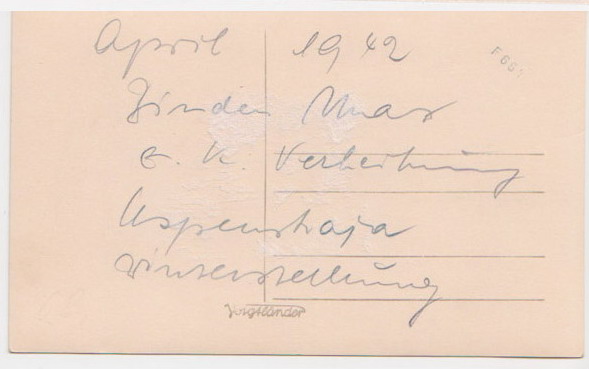 April 1942
F661
Zinder Max
E. K. Verleihung
Uspenskaja
Winterstellung
Voigtländer